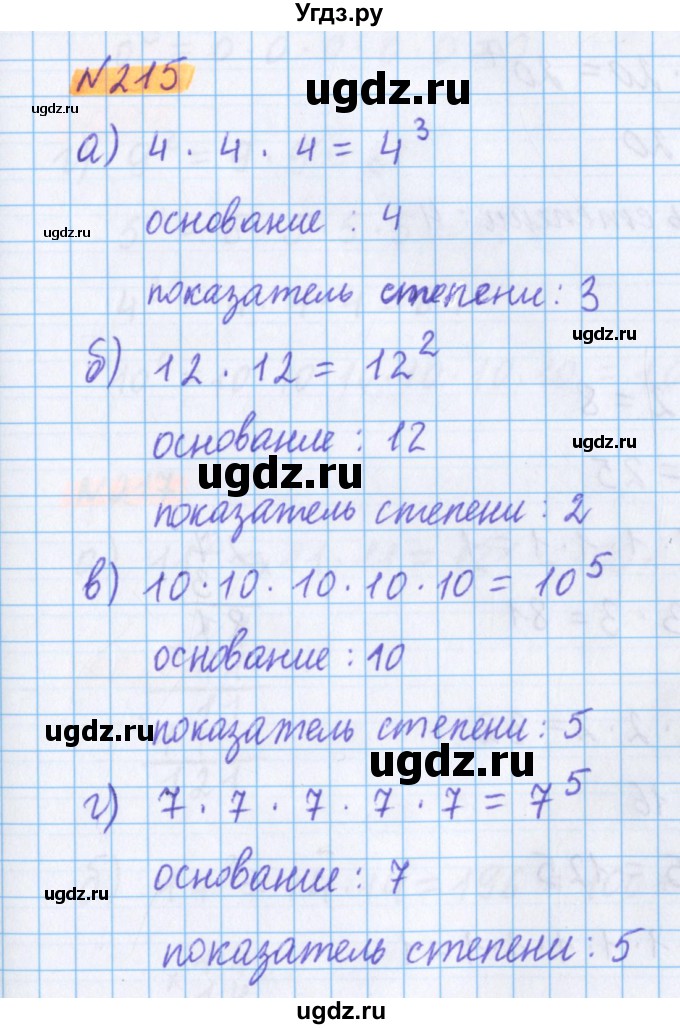 Угдз.ру
№215
ugdz.ru
ugdz.ru
а) 4 · 4 · 4 = 4³
основание : 4
ugdz.ru
показатель степени : 3
ugdz.ru
б) 12 · 12 = 12²
основание : 12
ugdz.ru
ugdz.ru
показатель степени : 2
ugdz.ru
в) 10 · 10 · 10 · 10 · 10 = 10⁵
основание : 10
ugdz.ru
показатель степени : 5
ugdz.ru
г) 7 · 7 · 7 · 7 · 7 = 7⁵
основание : 7
ugdz.ru
показатель степени : 5
ugdz.ru